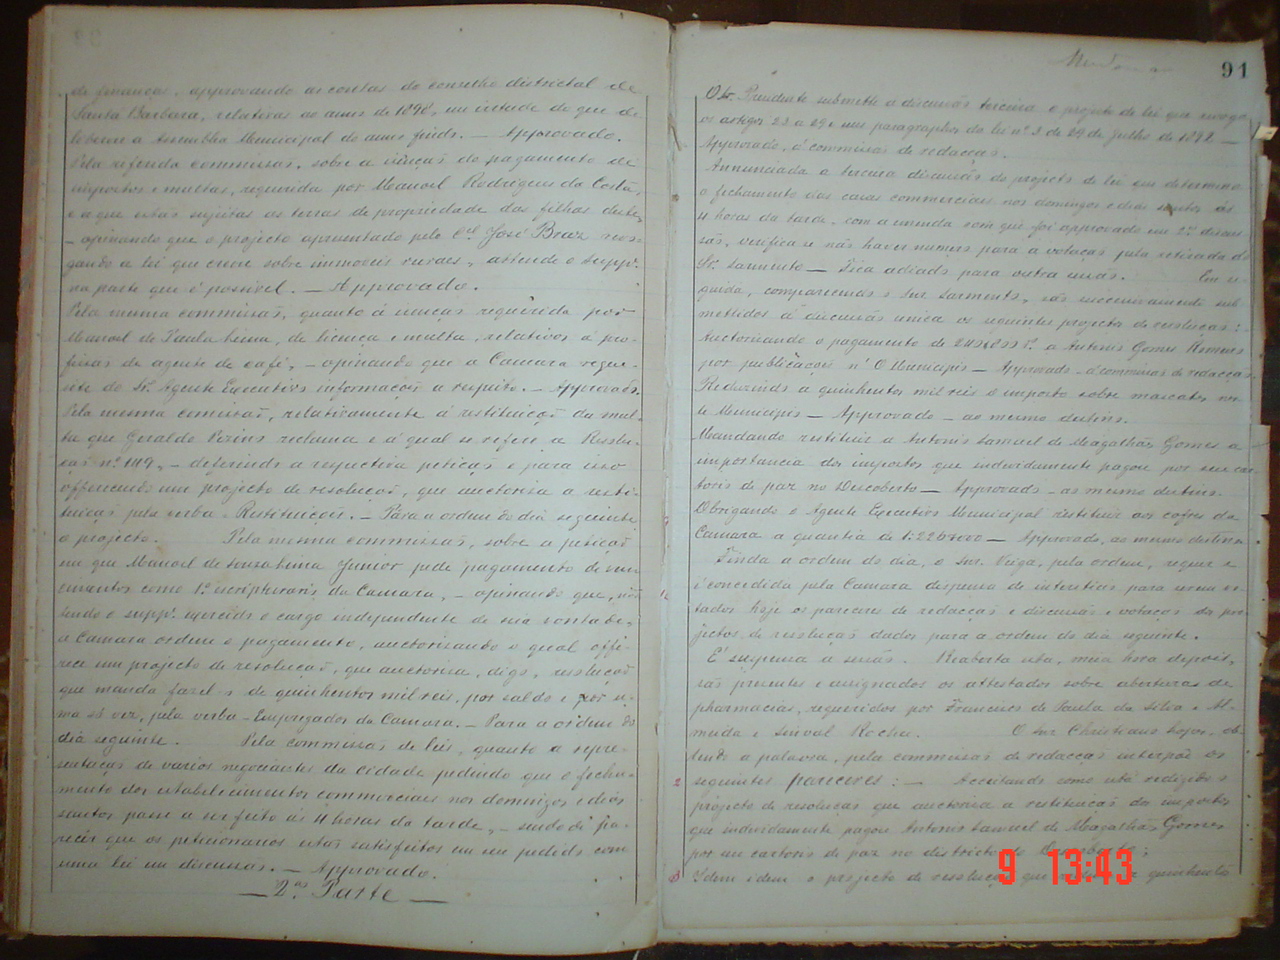 de finanças, approvando as contas do conselho districtal de
Santa Barbara, relativas ao anno de 1898, em virtude do que de
liberou a Assembléa Municipal do anno findo. — Approvado.
Pela referida commissão, sobre a isenção do pagamento de
impostos e multas, requerida por Manoel Rodrigues da Costa,
e a que estão sujeitas as terras de propriedade das filhas deste,
— opinando que o projecto apresentado pelo Cel José Braz revo-
gando a lei que creou sobre immoveis ruraes, attende o suppe
na parte que é possivel. — Approvado.
Pela mesma commissão, quanto á isenção requerida por
Manoel de Paula Lima, de licença e multa, relativos á pro-
fissão de agente de café, — opinando que a Camara requi-
site do Sr. Agente Executivo informação a respeito. — Approvado.
Pela mesma commissão, relativamente á restituição da mul-
ta que Geraldo reclama e á qual se refere a Resolu-
ção nº 119, — deferindo a respectiva petição e para isso
offerecendo um projecto de resolução, que auctorisa a resti-
tuição pela verba — Restituições. — Para a ordem do dia seguinte
o projecto. Pela mesma commissão, sobre a petição
em que Manoel de Souza Lima Junior pede pagamento de ven-
cimentos como 1º escripturario da Camara, — opinando que, não
tendo o suppe exercido o cargo independente de sua vontade,
a Camara ordene o pagamento, auctorisando o qual offe-
rece um projecto de resolução, que auctorisa, digo, resolução
que manda fazel-o de quinhentos mil reis, por saldo e por u-
ma só vez, pela verba — Empregados da Camara. — Para a ordem do
dia seguinte. Pela commissão de leis, quanto a repre-
sentação de varios negociantes da cidade pedindo que o fecha-
mento dos estabelecimentos commerciaes nos domingos e dias
santos passe a ser feito ás 4 horas da tarde, — sendo de pa-
recer que os peticionarios estão satisfeitos em seu pedido com
uma lei em discussão. — Approvado.
— 2ª Parte —
91
O Sr. Presidente submette á discussão terceira o projecto de lei que revoga
os artigos 23 a 29 e seus paragraphos da lei nº 3 de 29 de Julho de 1892 —
Approvado, á commissão de redacção.
Annunciada a terceira discussão do projecto de lei que determina
o fechamento das casas commerciaes nos domingos e dias santos ás
4 horas da tarde, com a emenda com que foi approvado em 2ª discus-
são, verifica-se não haver numero para a votação pela retirada do
Sr. Sarmento — Fica adiado para outra sessão. Em se-
guida, comparecendo o Snr. Sarmento, são successivamente sub-
mettidos á discussão unica os seguintes projectos de resolução:
Auctorisando o pagamento de a Antonio Gomes
por publicações n'O Municipio — Approvado — á commissão de redacção.
Reduzindo a quinhentos mil reis o imposto sobre mascates nes-
te Municipio — Approvado — ao mesmo destino.
Mandando restituir a Antonio Samuel de Magalhães Gomes a
importancia dos impostos que indevidamente pagou por seu car-
torio de paz no Descoberto — Approvado — ao mesmo destino.
Obrigando o Agente Executivo Municipal restituir aos cofres da
Camara a quantia de — Approvado, ao mesmo destino.
Finda a ordem do dia, o Snr. Veiga, pela ordem, requer e
é concedida pela Camara dispensa de intersticio para serem vo-
tados hoje os pareceres de redacção e discussão e votação dos pro-
jectos de resolução dados para a ordem do dia seguinte.
É suspensa a sessão. Reaberta esta, meia hora depois,
são presentes e assignados os attestados sobre aberturas de
pharmacias, requeridos por Francisco de Paula da Silva e Al-
meida e Sinval Rocha. O Snr Christiano , ob-
tendo a palavra, pela commissão de redacção interpõe os
seguintes pareceres: — Acceitando como está redigido o
projecto de resolução que auctorisa a restituição dos impostos
que indevidamente pagou Antonio Samuel de Magalhães Gomes
por seu cartorio de paz no districto do Descoberto;
Idem idem o projecto de resolução que quinhentos
9 13:43